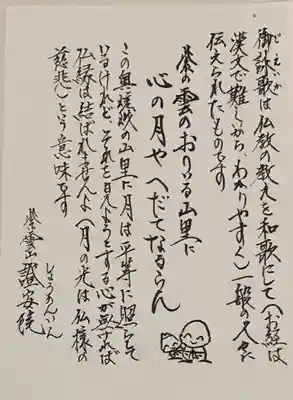 ごえいか
御詠歌は仏教の教えを和歌にして(お経は
漢文で難しから、わかりやすく)一般の人々に
伝えられたものです
紫の雲のおりゐる山里に
心の月や へだてなるらん
この奥嵯峨の山里に月は平等に照らして
いるけれど、それを見ようとする心が無ければ
仏縁は結ばれませんよ(月の光は仏様の
慈悲)という意味です
しょうあんいん
紫雲山 證安院